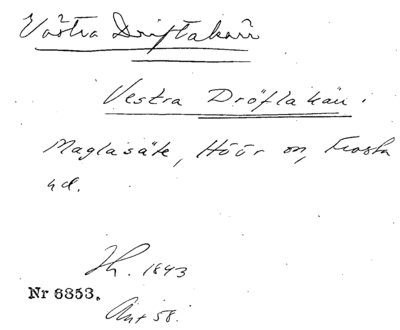 Västra Driftakärr
Vestra Dröflakärr.
Maglasäte, Höör sn, Frosta
hd.
1893
Nr 6353.
58.